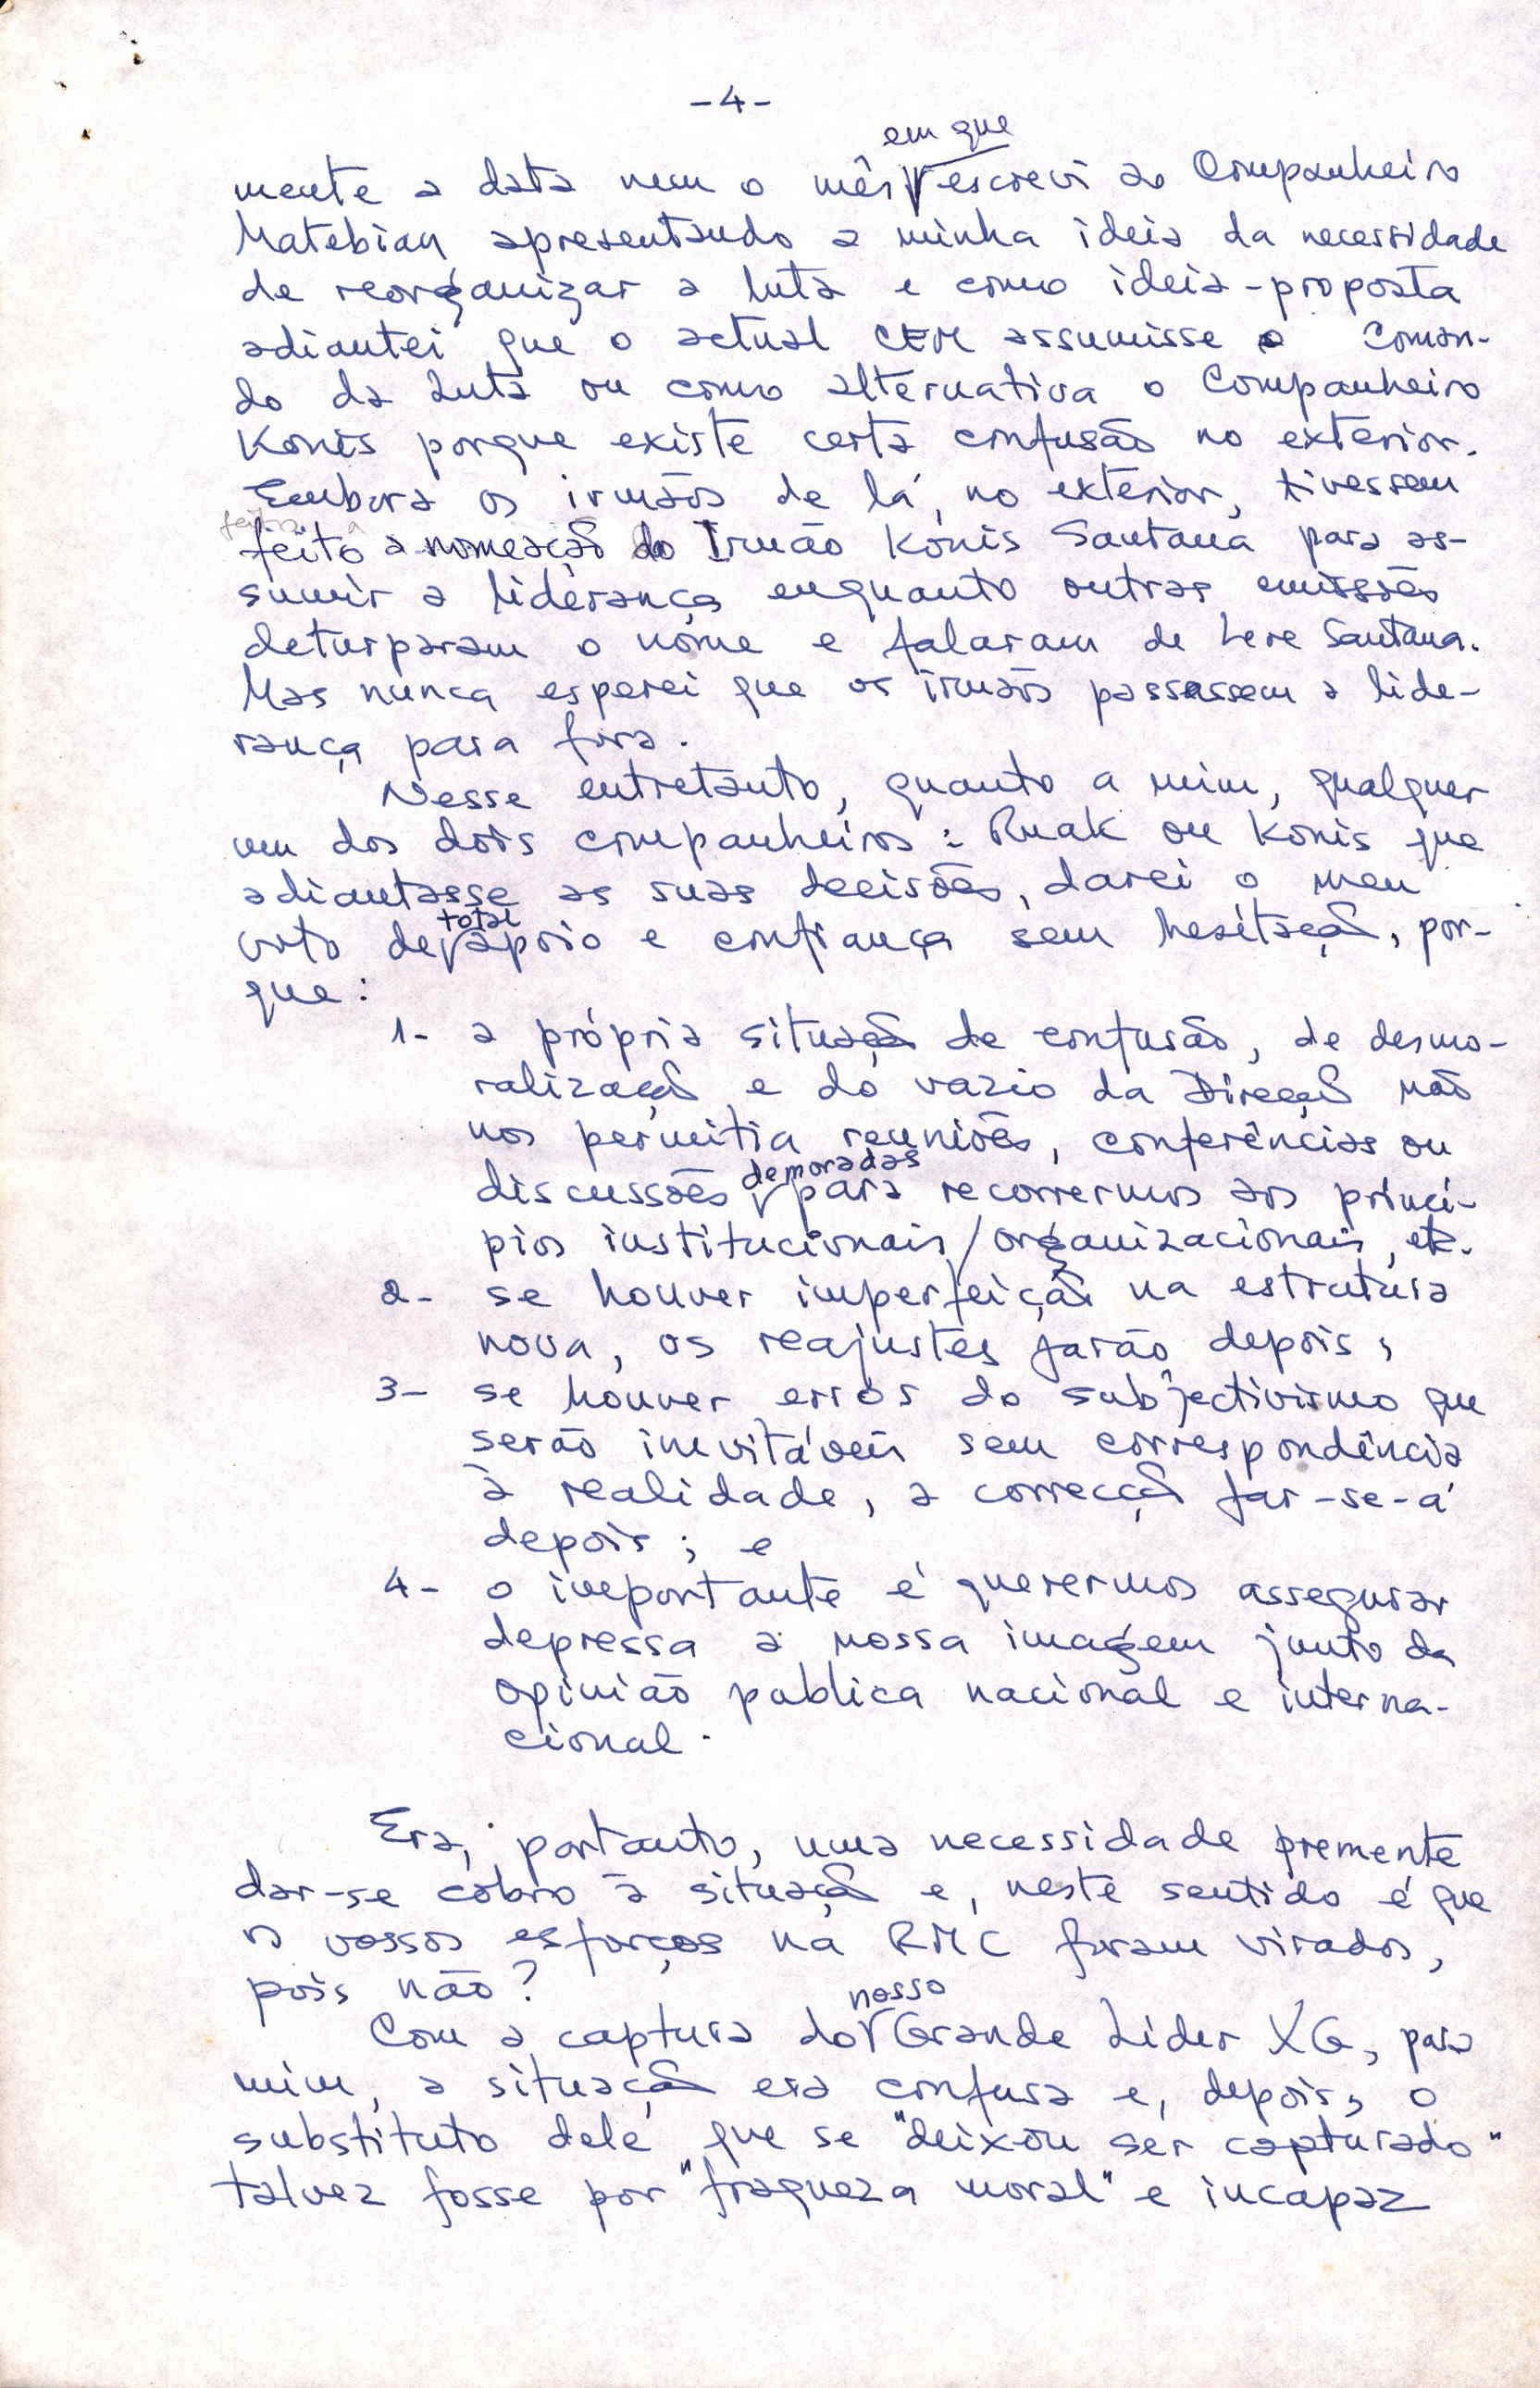 -4-
em que
mente a data nem o mês escrevi ao Companheiro
Matebian apresentando a minha ideia da necessidade
de reorganizar a luta e como ideia-proposta
adiantei que o actual CEM assumisse o Coman-
do da Luta ou como alternativa o Companheiro
Konis porque existe certa confusão no exterior.
Embora os irmãos de lá, no exterior, tivessem
feito a nomeação do Irmão Konis Santana para as-
sumir a liderança enquanto outras emissões
deturparam o nome e falaram de Lere Santana.
Mas nunca esperei que os irmãos passassem a lide-
rança para fora.
Nesse entretanto, quanto a mim, qualquer
um dos dois companheiros: Ruak ou Konis que
adiantasse as suas decisões, darei o meu
total
voto de apoio e confiança sem hesitação, por-
que:
1- a própria situação de confusão, de desmo-
ralização e do vazio da Direcção não
nos permitia reuniões, conferências ou
demoradas
discussões para recorrermos aos princí-
pios institucionais/organizacionais, etc.
2- se houver imperfeição na estrutura
nova, os reajustes farão depois;
3- se houver erros do subjectivismo que
serão inevitáveis sem correspondência
à realidade, a correcção far-se-á
depois; e
4- o importante é querermos assegurar
depressa a nossa imagem junto da
opinião publica nacional e interna-
cional.
Era, portanto, uma necessidade premente
dar-se cobro à situação e, neste sentido é que
os vossos esforços na RMC foram virados,
pois não?
nosso
Com a captura do Grande Lider XG, para
mim, a situação era confusa e, depois, o
substituto dele que se "deixou ser capturado"
talvez fosse por "fraqueza moral" e incapaz